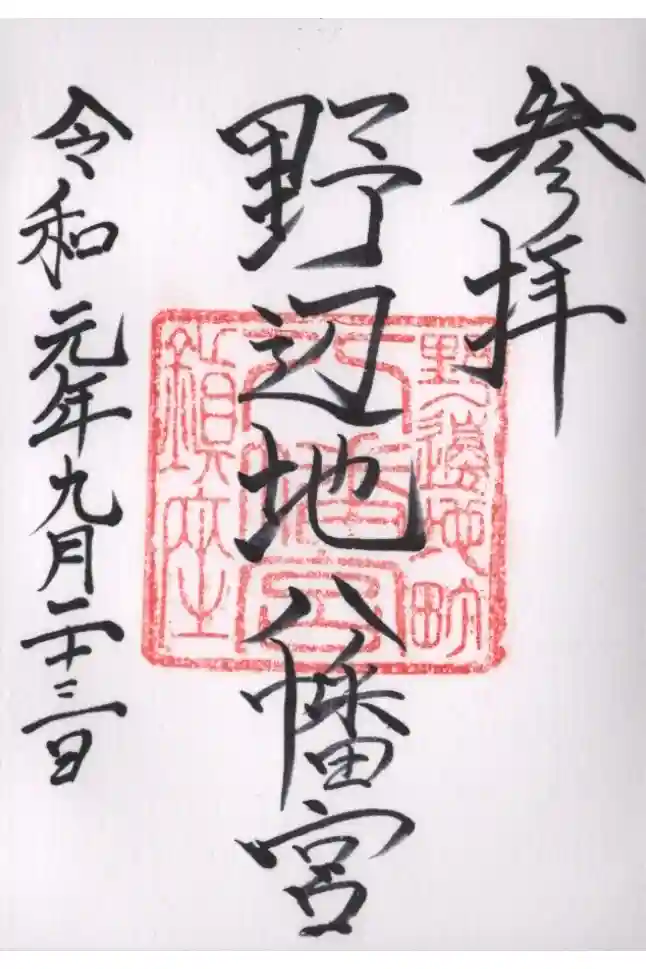 参拝
野辺地八幡宮
令和元年九月二十三日
野邊地町
八幡宮
鎮座